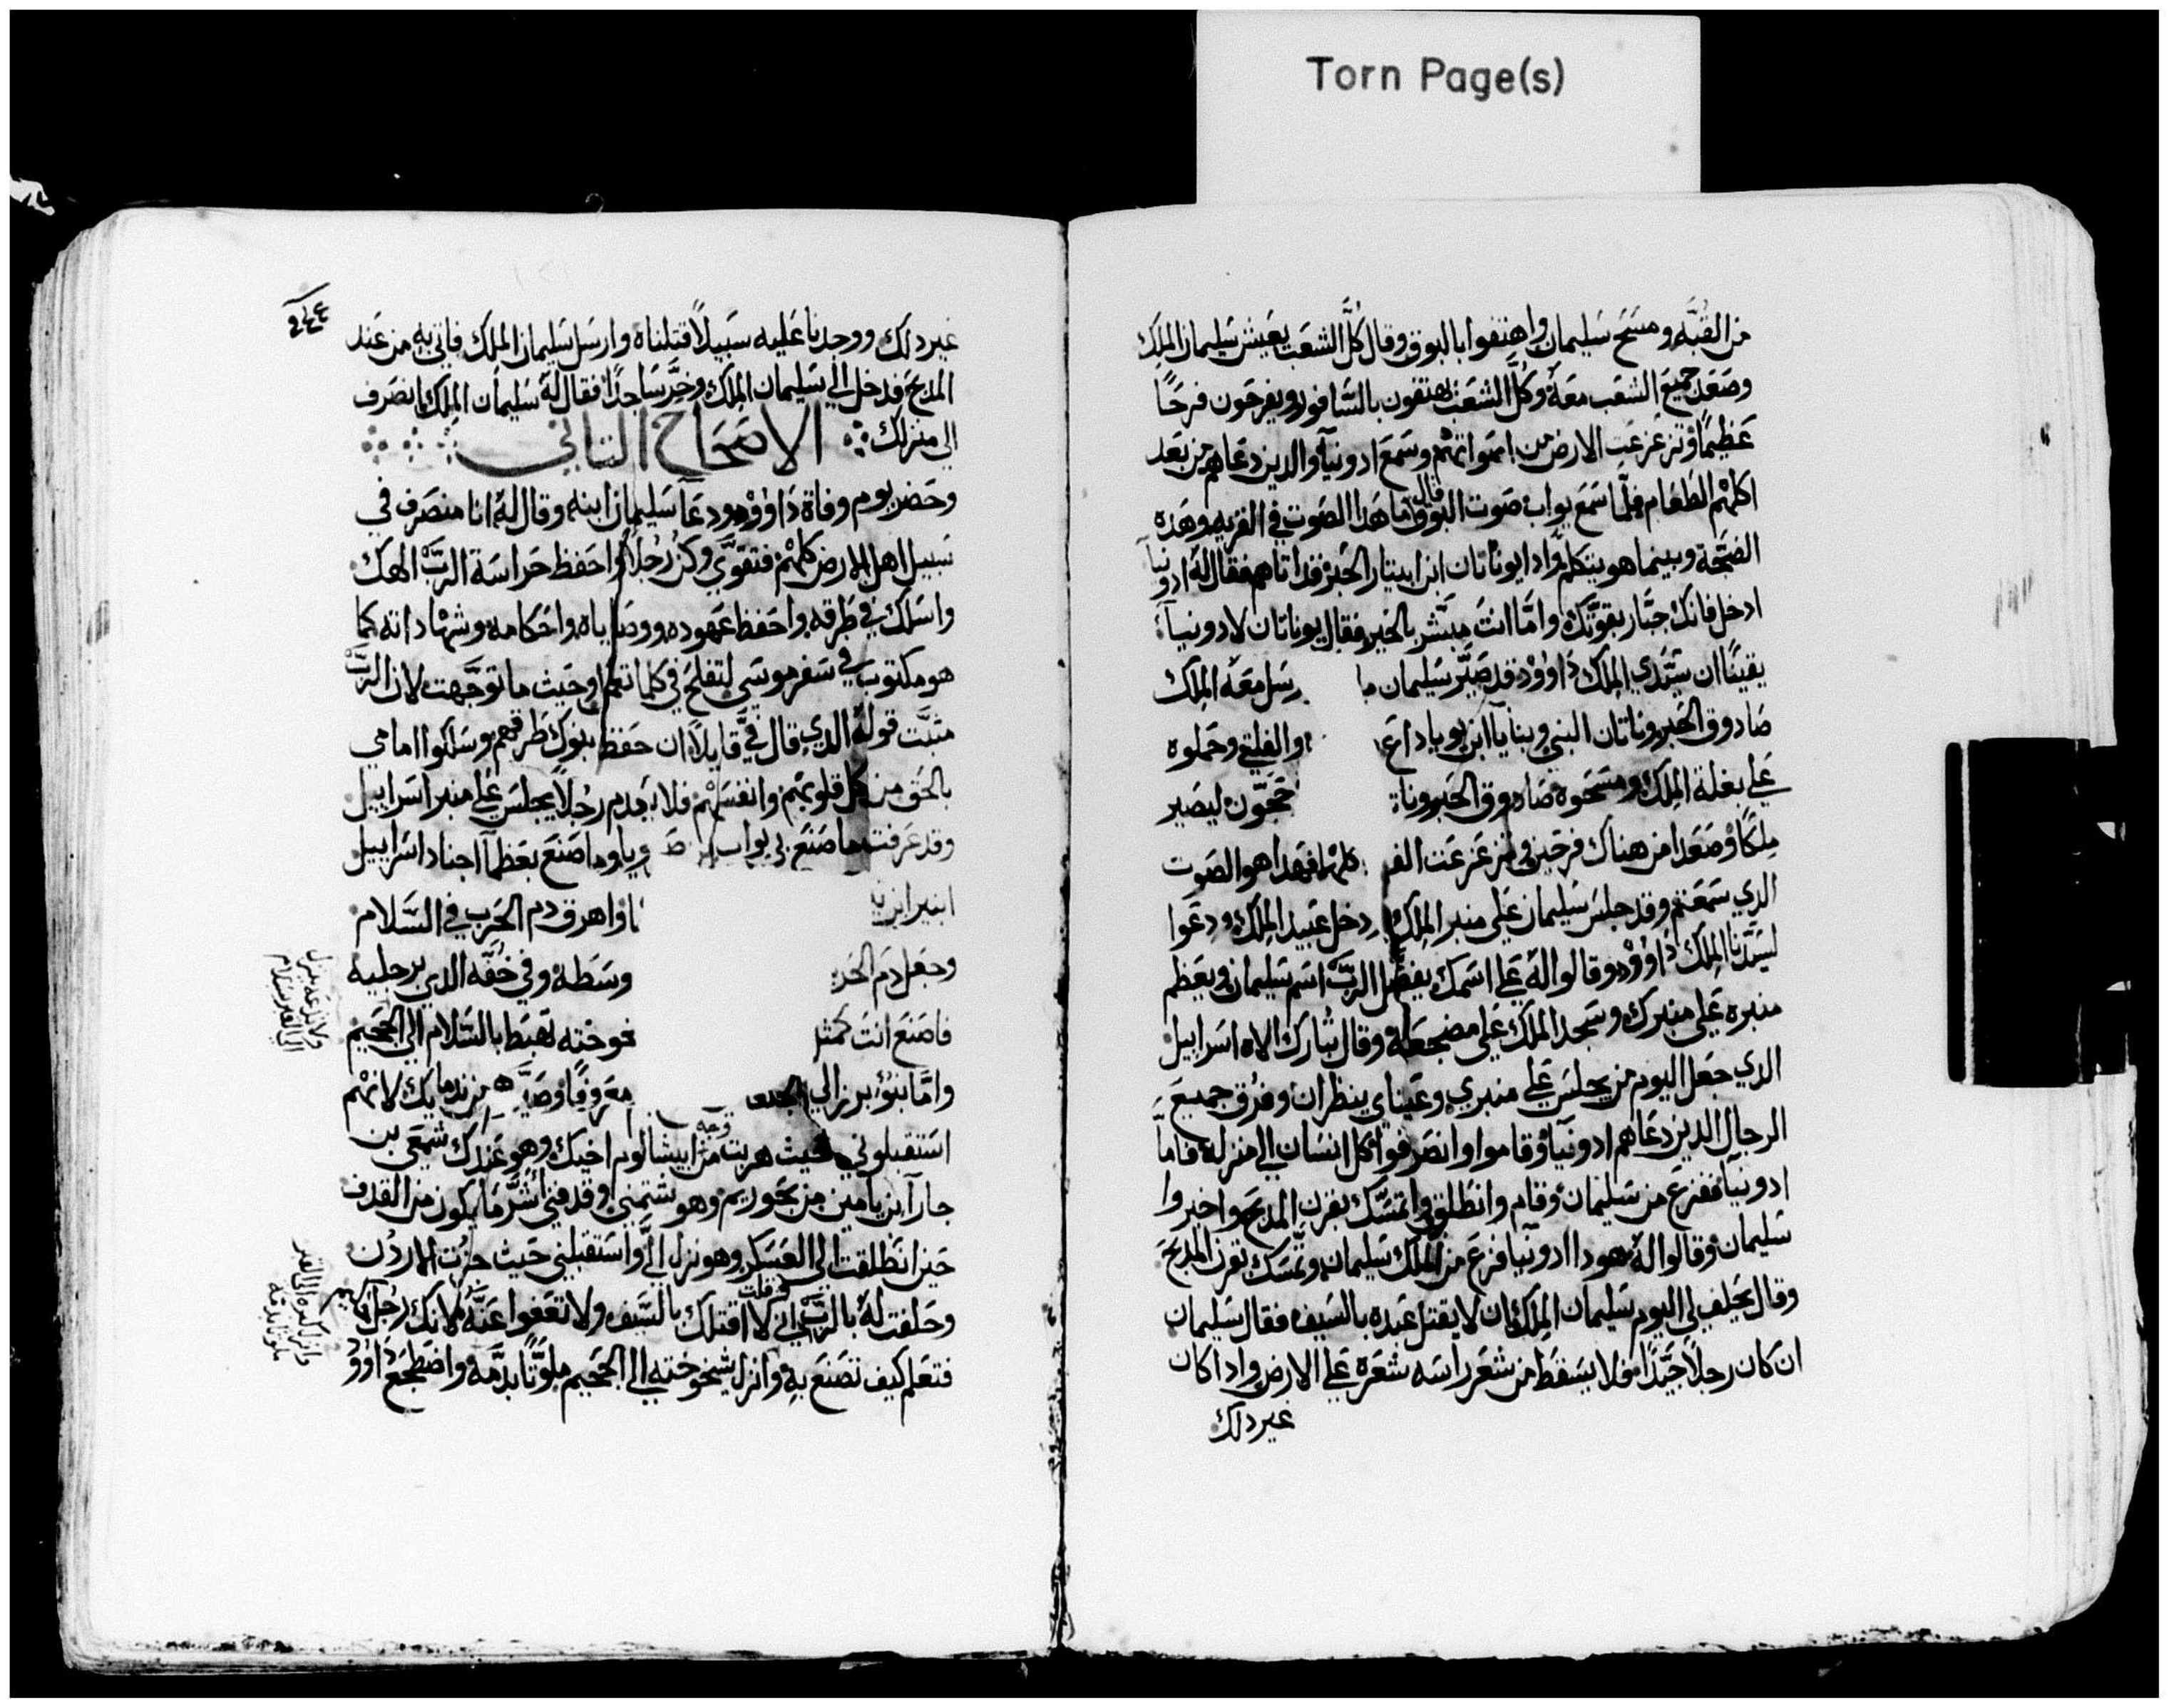 Torn Page(s)
من القبه ومسح سليمان واهتفوا بالبوق وقال كل الشعب يعيش سليمان الملك
وصعد جميع الشعب معه وكل الشعب يهتفون بالسافور ويفرحون فرحًا
عظيمًا وتزعزعت الارض من اصواتهم وسمع ادونيا والدين دعاهم من بعد
اكلهم الطعام فلما سمع يواب صوت البوق قال ما هدا الصوت في القريه وهده
الضجة وبينما هو يتكلم وادا يوناتان ابن ابيتار الحبر قد اتاهم فقال له ادونيا
ادخل فانك جبار بقوتك واما انت مبشر بالخير فقال يوناتان لادونيا
يقينًا ان سيدي الملك داوود قد صير سليمان ما رسل معه الملك
صادوق الحبر وناتان النبي وبنايا ابن يوياداع والفلتي وحملوه
علي بغلة الملك ومسحوه صادوق الحبر وناتا جحون ليصير
ملكًا وصعدا من هناك فرحين وتزعزعت القر كلها فهدا هو الصوت
الدي سمعتم وقد جلس سليمان علي منبر الملك دخل عبيد الملك ودعوا
لسيدنا الملك داوود وقالوا له علي اسمك يفضل الرب اسم سليمان ويعظم
منبره علي منبرك وسجد الملك علي مضجعه وقال تبارك الاه اسراييل
الدي جعل اليوم من يجلس علي منبري وعيناي ينظران وفرق جميع
الرجال الدين دعاهم ادونيا وقاموا وانصرفوا كل انسان الي منزله فاما
ادونيا ففزع من سليمان وقام وانطلق وتمسك بقرن المدبح واخبروا
سليمان وقالوا له هودا ادونيا فزع من الملك سليمان وتمسك بقرن المدبح
وقال يحلف لي اليوم سليمان الملك ان لا يقتل عبده بالسيف فقال سليمان
ان كان رجلاً جيدًا فلا يسقط من شعر راسه شعره علي الارض وادا كان
غير دلك
٢٤٤
غير دلك ووجدنا عليه سبيلاً قتلناه وارسل سليمان الملك فاتي به من عند
المدبح فدخل الي سليمان الملك وخر ساجدًا فقال له سليمان الملك انصرف
الي منزلك الاصحاح التاني
وحضر يوم وفاة داوود ودعا سليمان ابنه وقال له انا منصرف في
سبيل اهل الارض كلهم فتقوي وكن رجلاً واحفظ حراسة الرب الهك
واسلك في طرقه واحفظ عهوده ووصاياه واحكامه وشهاداته كما
هو مكتوب في سفر موسي لتفلح في كلما تعمل وحيث ما توجهت لان الرب
متبت قوله الدي قال في قايلاً ان حفظ بنوك طرقهم وسلكوا امامي
بالحق من كل قلوبهم وانفسهم فلا يعدم رجلاً يجلس علي منبر اسراييل
وقد عرفت ما صنع بي يواب ابن صورويا وما صنع بعظما اجناد اسراييل
ابنير ابن ا واهرق دم الحرب في السلام
وجعل دم الحر وسطه وفي خفه الدي برجليه
فاصنع انت كمتل خوخته تهبط بالسلام الي الجحيم
واما بنو برزالي الجلعا معروفًا وصيرهم من ندمايك لانهم
استقبلوني حيث هربت من وجه ابيشالوم اخيك وهو عندك شمعي بن
جارا ابن يامين من بحوريم وهو شتمني وقدفني اشر ما يكون من القدف
حين انطلقت الي العسكر وهو نزل الي واستقبلني حيث جزت الاردن
وحلفت له بالرب وقلت اني لا اقتلك بالسيف ولا تعفوا عنه لانك رجل حكيم
فتعلم كيف تصنع به وانزل شيخوخته الي الجحيم ملوتًا بدمه واضطجع داوود
ولا تدعه ينزل
الي القبر بسلام
وانزل كبره الي القبر
ملوتا بدمه